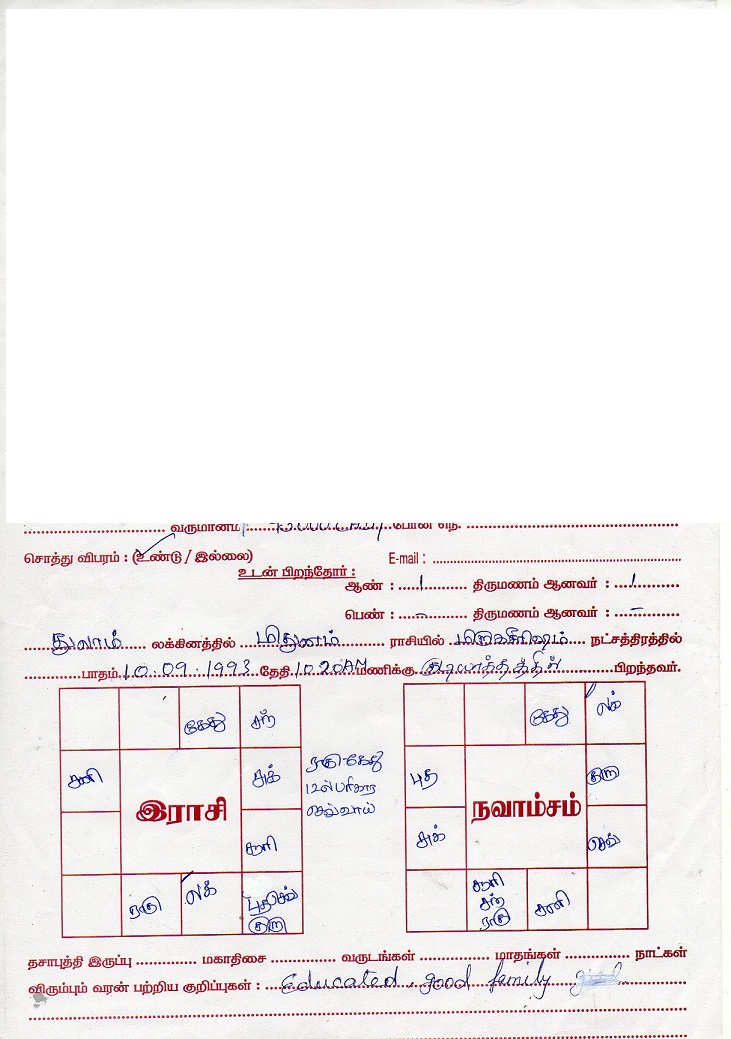 வருமானம் 15,000 போன் எந.
சொத்து விபரம் : (உண்டு / இல்லை) E-mail :
உடன் பிறந்தோர் :
ஆண் : 1 திருமணம் ஆனவர் : 1
பெண் : - திருமணம் ஆனவர் : -
துலாம் லக்கினத்தில் மிதுனம் ராசியில் மிருகசீரிஷம் நட்சத்திரத்தில்
பாதம் 10.09.1993 தேதி 10.20AM மணிக்கு பிறந்தவர்.
கேது சந்
சனி சுக்
இராசி
சூரி
ராகு லக் புத செவ் குரு
ராகு-கேது
செவ்வாய்
கேது லக்
புத குரு
நவாம்சம்
சுக் செவ்
சூரி சந் ராகு சனி
தசாபுத்தி இருப்பு மகாதிசை வருடங்கள் மாதங்கள் நாட்கள்
விரும்பும் வரன் பற்றிய குறிப்புகள் : Educated, good family